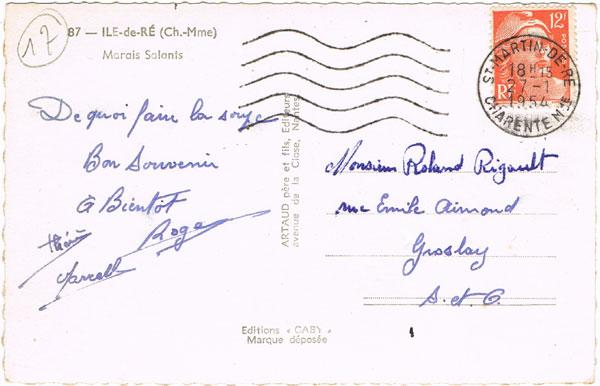 17
87 — ILE-de-RÉ (Ch.-Mme)
Marais Salants
12F
RF
ST-MARTIN-DE-RÉ
18H15
27-1
1954
CHARENTE MME
De quoi fair la soupe
Bon Souvenir
à Bientôt
Roge
Marcell
ARTAUD père et fils, Editeurs
avenue de la Close, Nantes
Monsieur Roland Rigault
rue Emile Aimond
Groslay
S. et O.
Editions « CABY »
Marque déposée